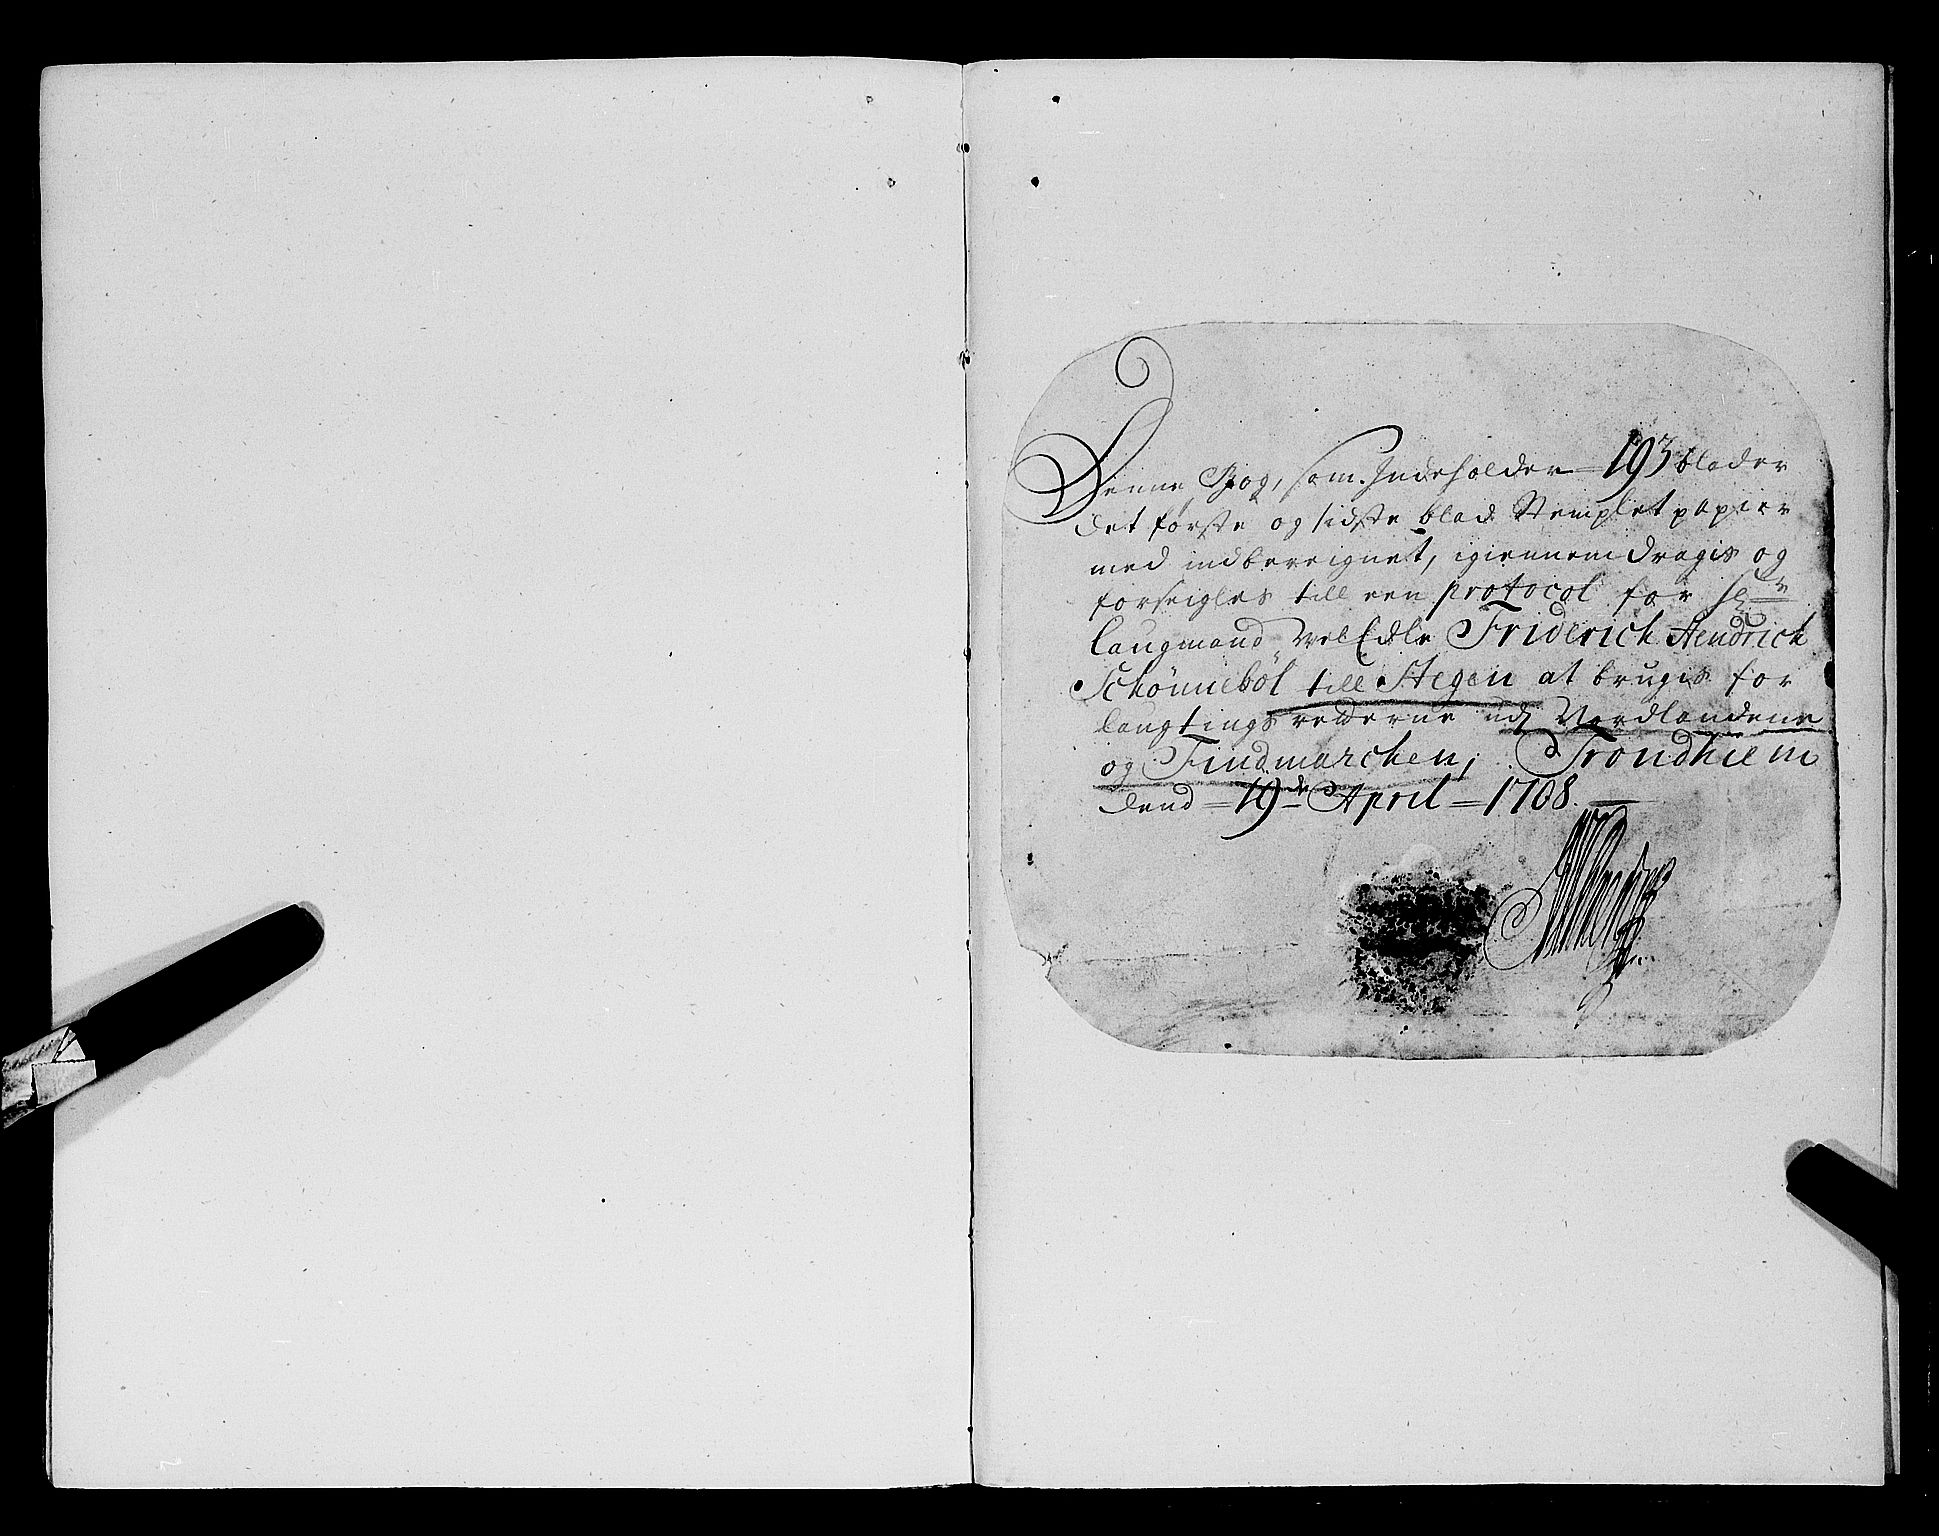 Denne Bog, som Indeholder 193 blader
det første og sidste blad Stemplet papier
med indbereignet, igiennemdragis og
forseigles till een protocol for Hr
laugmand Vel Edle Friderich Hendrich
Schønnebøl till Stegen at brugis for
laugtings retterne udj Nordlandene
og Findmarchen; Trondhiem
dend 19de April 1708.